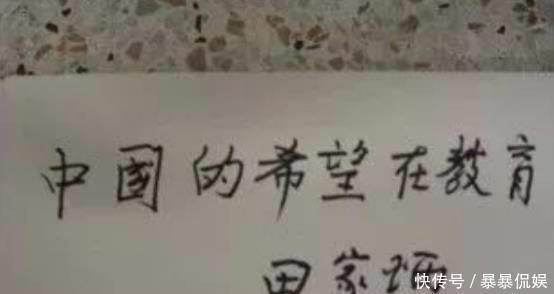 中国的希望在教育
田家炳
快传号 / 暴暴侃娱